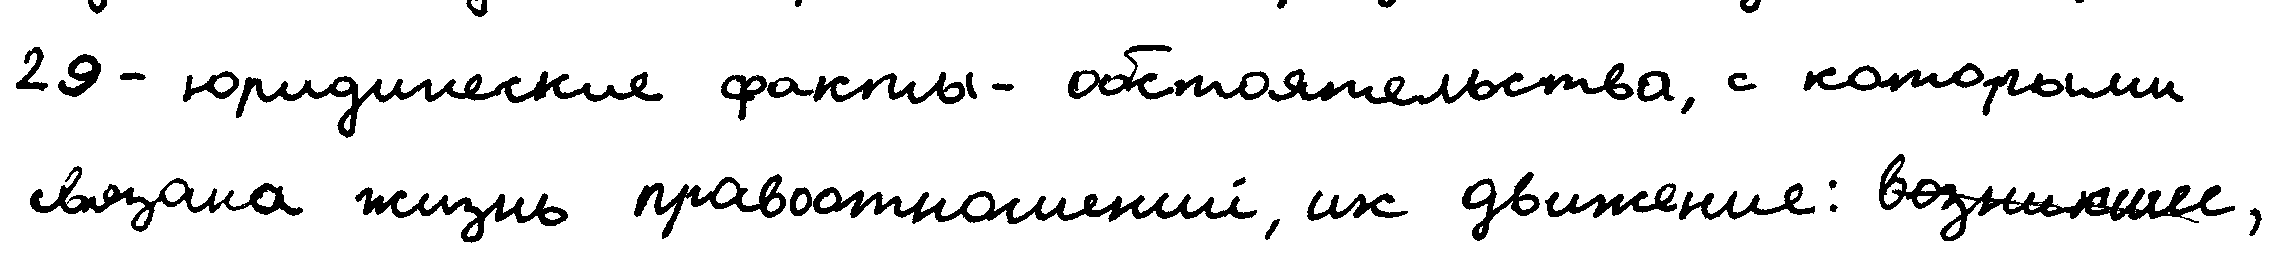 29 - юридические факты - обстоятельства, с которыми
связана жизнь правоотношений, их движение: возникшее,